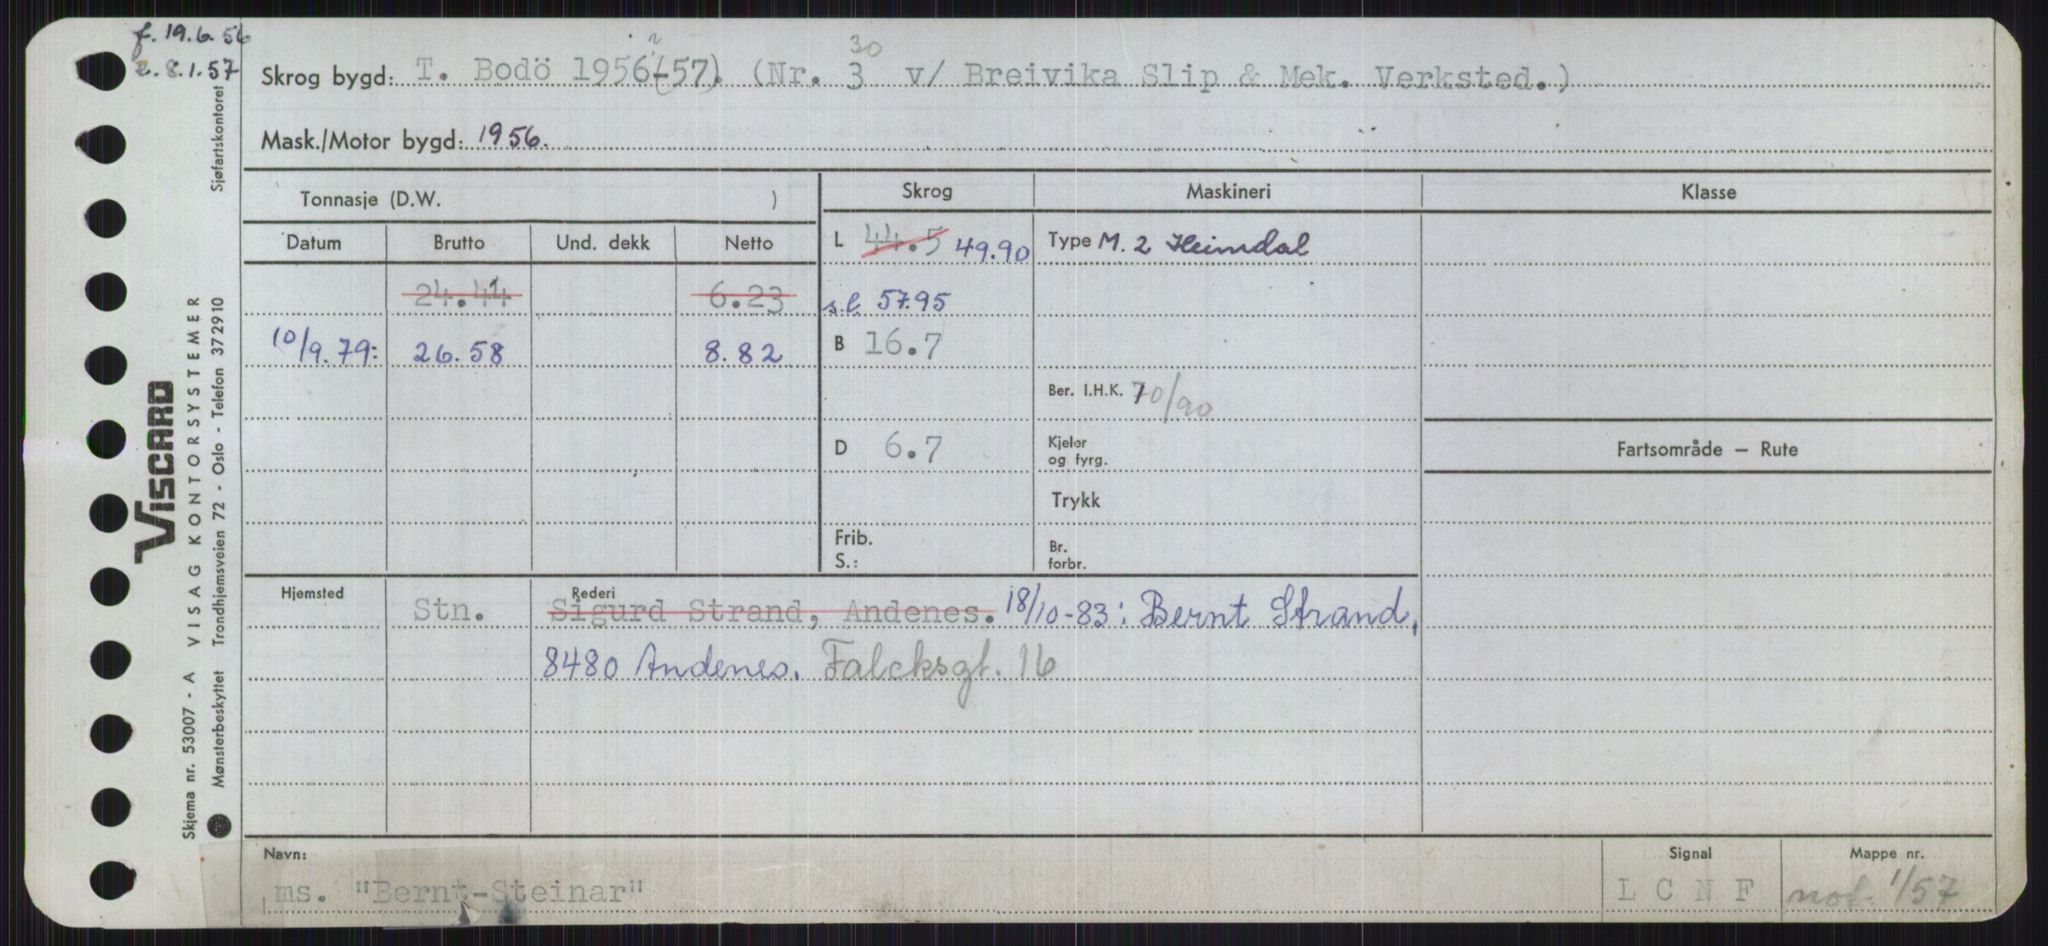 f. 19.6.56
r. 8.1.57
Skrog bygd: T. Bodö 1956(-57). (Nr. 3 v/ Breivika Slip & Mek. Verksted.)
30
Mask./Motor bygd: 1956.
Tonnasje (D.W. )
Skrog
Maskineri
Klasse
Datum
Brutto
Und. dekk
Netto
L 44.5 49.90
Type M. 2 Heimdal
24.44
6.23
s.l. 57.95
10/9.79:
26.58
8.82
B 16.7
Ber. I.H.K. 70/90
D 6.7
Kjeler
og fyrg.
Fartsområde – Rute
Trykk
Frib.
S.:
Br.
forbr.
Hjemsted
Stn.
Rederi
Sigurd Strand, Andenes. 18/10-83: Bernt Strand,
8480 Andenes. Falcksgt. 16
Navn:
ms. "Bernt-Steinar"
Signal
L C N F
Mappe nr.
not. 1/57
Viscard
Skjema nr. 53007 - A VISAG KONTORSYSTEMER
Mønsterbeskyttet Trondhjemsveien 72 - Oslo - Telefon 372910 Sjøfartskontoret